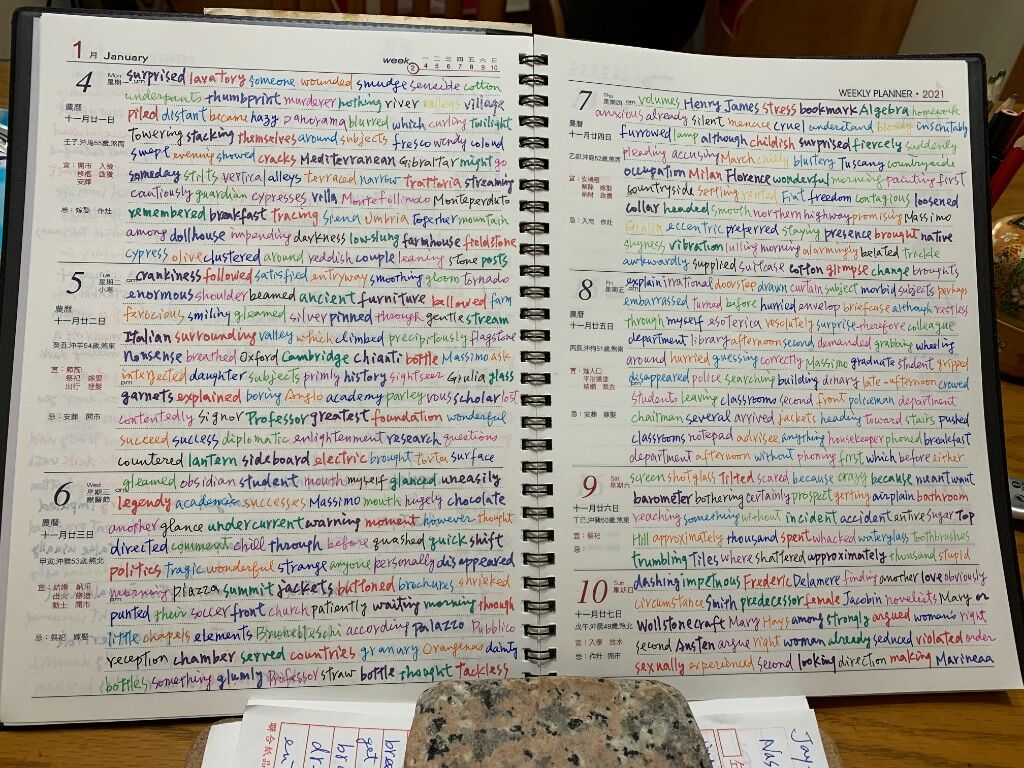 1 月 January
week 2
一 二 三 四 五 六 日
4 5 6 7 8 9 10
4 Mon 星期一
農曆
十一月廿一日
surprised lavatory someone wounded smudge sensible cotton
underpants thumbprint murderer nothing river valleys village
piled distant became hazy panorama blurred which curling twilight
towering stacking themselves around subjects fresco windy colond
swept evening showed cracks Mediterranean Gibraltar might go
someday stilts vertical alleys terraced narrow trattoria streaming
cautiously guardian cypresses villa Montefollinoco Monteperduto
remembered breakfast tracing siena Umbria together mountain
among dollhouse impending darkness low-slung farmhouse fieldstone
cypress olive clustered around reddish couple leaning stone posts
5 Tue 星期二
小寒
農曆
十一月廿二日
crankiness followed satisfied entryway smoothing gloom tornado
enormous shoulder beamed ancient furniture bellowed farm
ferocious smiling gleamed silver pinned through gentle stream
Italian surrounding valley which climbed precipitously flagstone
nonsense breathed Oxford Cambridge chianti bottle Massimo ask
interjected daughter subjects primly history sightseer Giulia glass
garnets explained boring Anglo academy parley vous scholar lost
contentedly signor Professor greatest foundation wonderful
succeed success diplomatic enlightenment research questions
countered lantern sideboard electric brought torta surface
6 Wed 星期三
農曆
十一月廿三日
gleamed obsidian student mouth myself glanced uneasily
legendy academic successes Massimo mouth hugely chocolate
another glance undercurrent warning moment however thought
directed comment chill through before quashed quick shift
politics tragic wonderful strange anyone personally disappeared
morning piazza summit jackets buttoned brochures shrieked
punted their soccer front church patiently waiting morning though
little chapels elements Brunelleschi according Palazzo Pubblico
reception chamber served countries granary Orangines dainty
bottles something glumly Professor straw bottle thought tackless
WEEKLY PLANNER・2021
7 Thu 星期四
農曆
十一月廿四日
volumes Henry James stress bookmark Algebra homework
anxious already silent menace cruel understand bloody inscritably
furrowed lamp although childish surprised fiercely suddenly
pleading accusing March chilly blustery Tuscany countryside
occupation Milan Florence wonderful morning painting first
countryside settling rented Fiat freedom contagious loosened
collar headed smooth northern highway promising Massimo
Giulia eccentric preferred staying presence brought native
shyness vibration lulling morning alarmingly belated trickle
awkwardly supplied suitcase cotton glimpse change broughts
8 Fri 星期五
農曆
十一月廿五日
explain irrational doorstep drawn curtain subject morbid subjects perhaps
embarrassed turned before hurried envelop briefcase although restless
through myself esoterica resolutely surprise therefore colleague
department library afternoon second demanded grabbing wheeling
around hurried guessing correctly Massimo graduate student gripped
disappeared police searching building dinary late-afternoon crowed
student leaving classrooms second front policeman department
chairman several arrived jackets heading toward stairs pushed
classrooms notepad advisee anything housekeeper phoned breakfast
department afternoon without phoning first which before either
9 Sat 星期六
十一月廿六日
screen shotglass tilted scared because crazy because nuant want
barometer bothering certainly prospect getting airplain bathroom
reaching something without incident accident entire sugar Top
Hill approximately thousand spent whacked waterglass toothbrushes
trumbling tiles where shattered approximately thousand stupid
10 Sun 星期日
十一月廿七日
dashing impetuous Frederic Delamere finding another love obviously
circumstance smith predecessor female Jacobin novelists Mary or
Wollstonecraft Mary Hays among strongly argued woman's right
second Austen argue right woman already seduced violated order
sexually experienced second looking direction making Marineaa